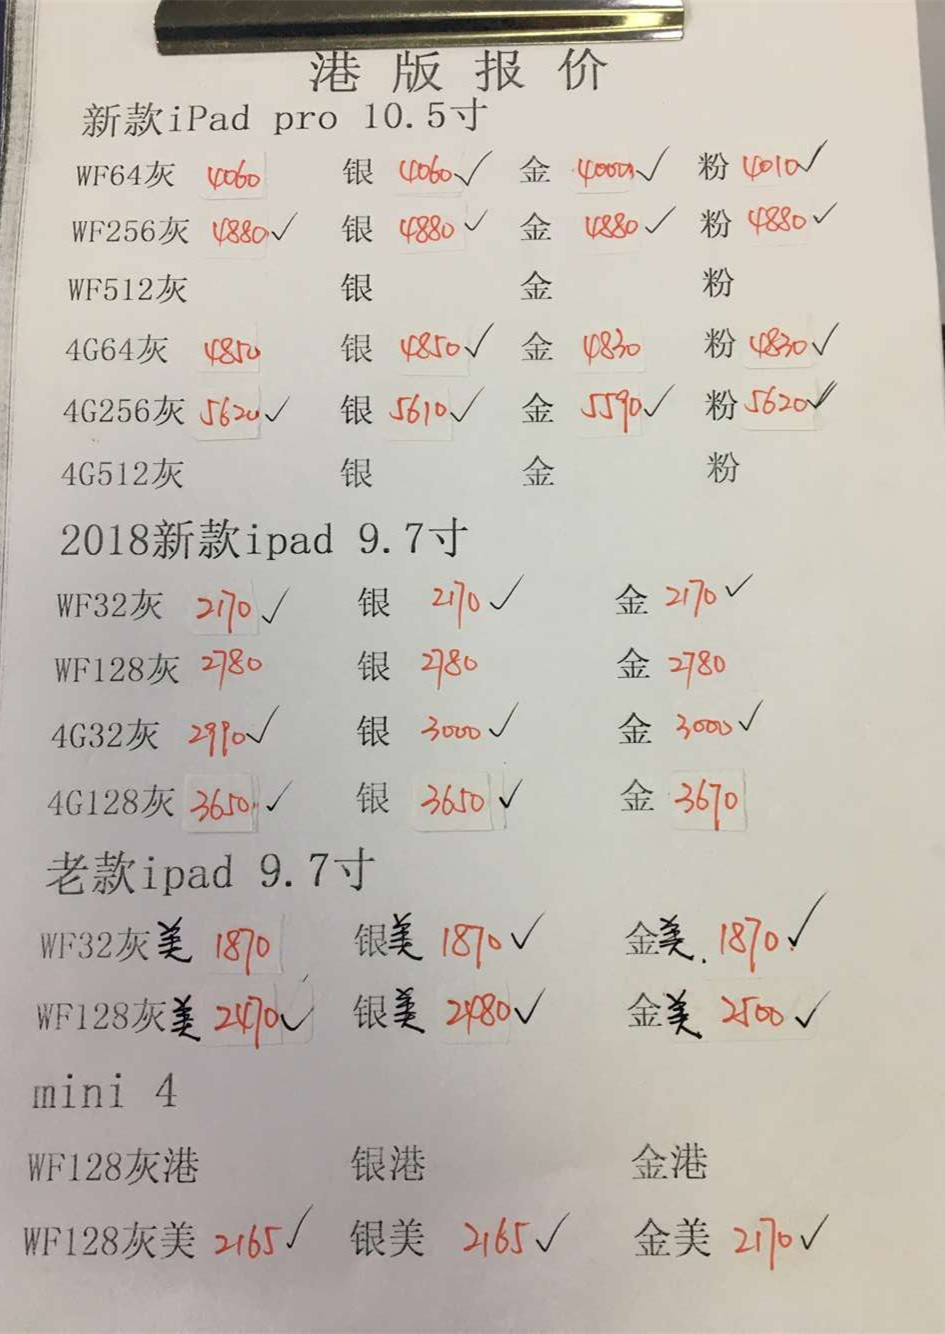 港版报价
新款iPad pro 10.5寸
WF64灰 4060 银 4060✓ 金 4000✓ 粉 4010✓
WF256灰 4880✓ 银 4880✓ 金 4880✓ 粉 4880✓
WF512灰 银 金 粉
4G64灰 4850 银 4850✓ 金 4830 粉 4830✓
4G256灰 5620✓ 银 5610✓ 金 5590✓ 粉 5620✓
4G512灰 银 金 粉
2018新款ipad 9.7寸
WF32灰 2170✓ 银 2170✓ 金 2170✓
WF128灰 2780 银 2780 金 2780
4G32灰 2990✓ 银 3000✓ 金 3000✓
4G128灰 3650✓ 银 3650✓ 金 3670
老款ipad 9.7寸
WF32灰美 1870 银美 1870✓ 金美. 1870✓
WF128灰美 2470✓ 银美 2480✓ 金美 2500✓
mini 4
WF128灰港 银港 金港
WF128灰美 2165✓ 银美 2165✓ 金美 2170✓